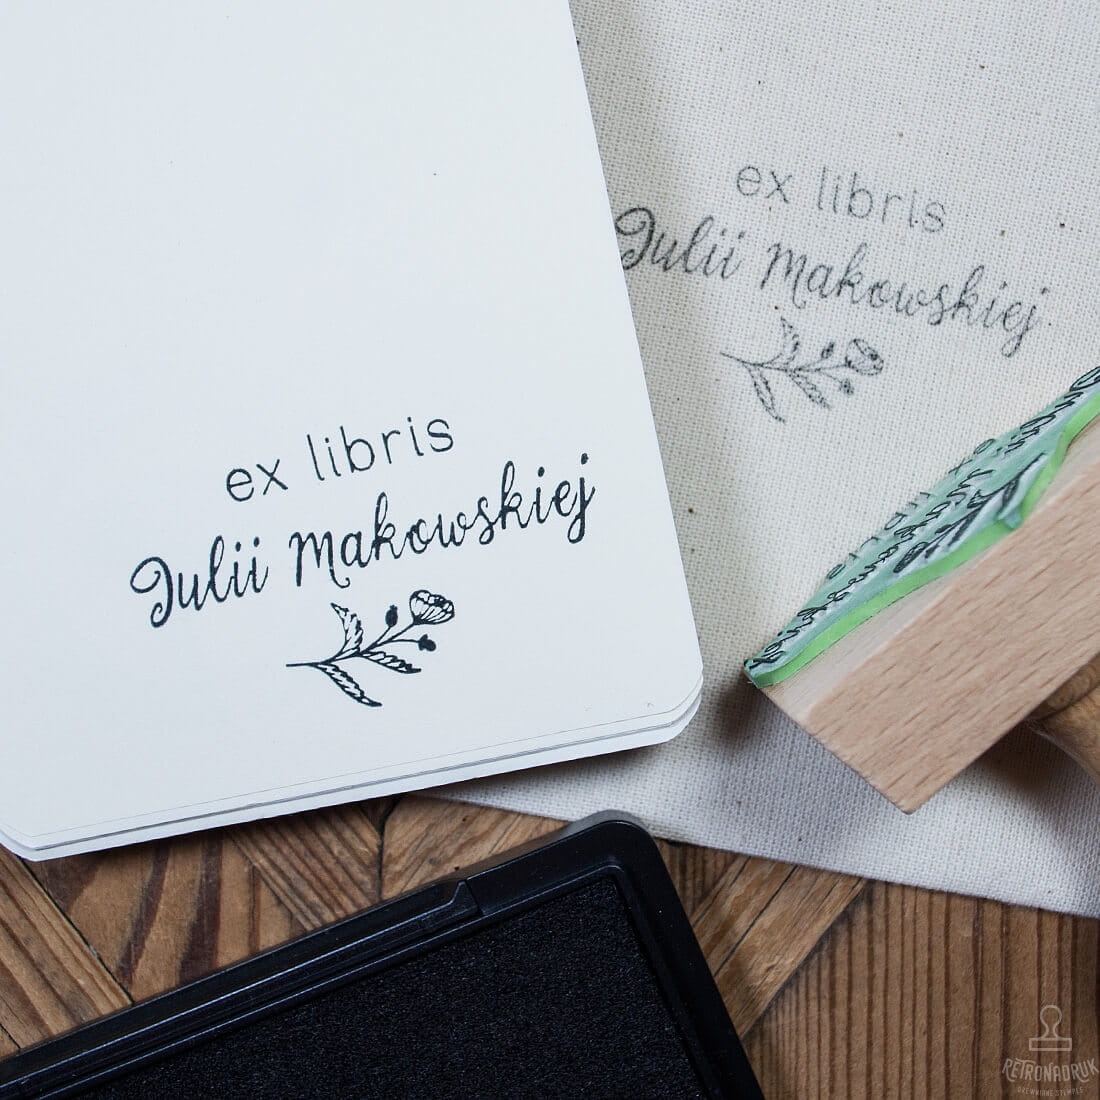 ex libris
Julii Makowskiej
ex libris
Julii Makowskiej
RETRONADRUK
DREWNIANE STEMPLE